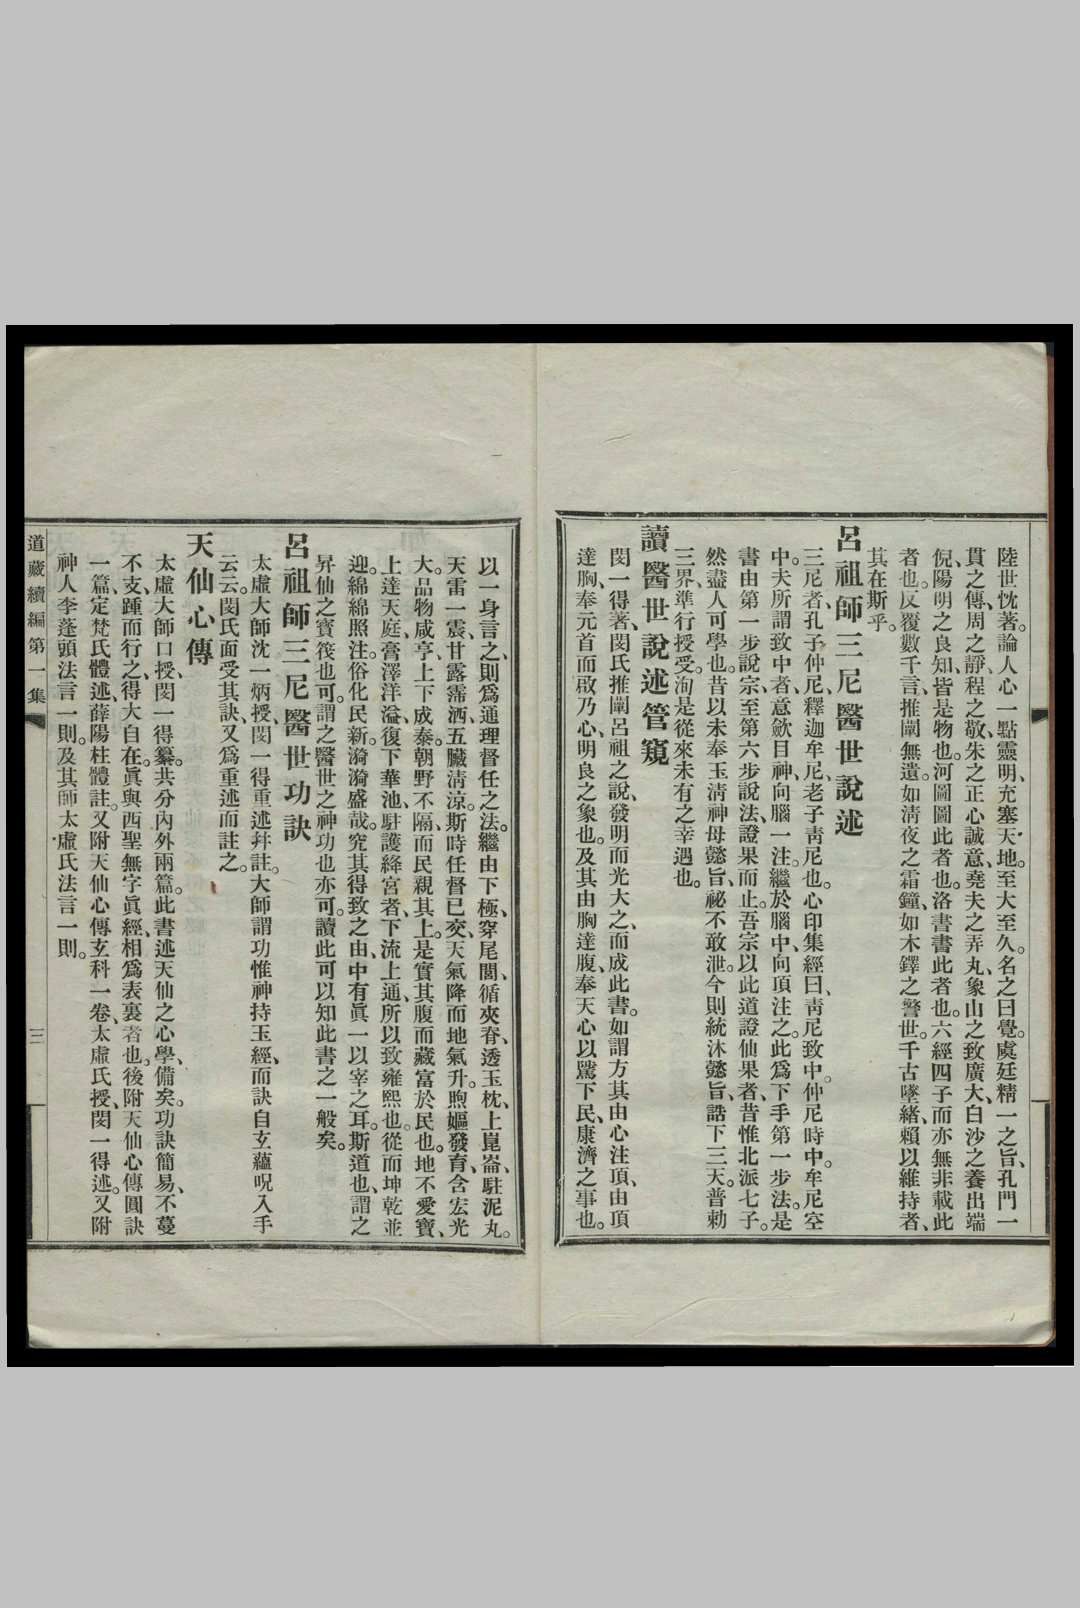 陸世忱著。論人心一點靈明、充塞天地。至大至久。名之曰覺。虞廷精一之旨、孔門一
貫之傳、周之靜、程之敬、朱之正心誠意、堯夫之弄丸、象山之致廣大、白沙之養出端
倪、陽明之良知、皆是物也。河圖圖此者也。洛書書此者也。六經四子而亦無非載此
者也。反覆數千言、推闡無遺。如淸夜之霜鐘、如木鐸之警世。千古墜緒、賴以維持者、
其在斯乎。
呂祖師三尼醫世說述
三尼者、孔子仲尼、釋迦牟尼、老子靑尼也。心印集經曰、靑尼致中。仲尼時中。牟尼空
中。夫所謂致中者、意歛目神、向腦一注。繼於腦中、向頂注之。此爲下手第一步法。是
書由第一步說宗、至第六步說法、證果而止。吾宗以此道證仙果者、昔惟北派七子。
然盡人可學也。昔以未奉玉淸神母懿旨、祕不敢泄。今則統沐懿旨、誥下三天。普勅
三界、準行授受。洵是從來未有之幸遇也。
讀醫世說述管窺
閔一得著、閔氏推闡呂祖之說、發明而光大之、而成此書。如謂方其由心注頂、由頂
達胸、奉元首而啟乃心、明良之象也。及其由胸達腹、奉天心以騭下民、康濟之事也。
以一身言之、則爲通理督任之法。繼由下極、穿尾閭、循夾脊、透玉枕、上崑崙、駐泥丸。
天雷一震、甘露霈洒、五臟淸涼。斯時任督已交、天氣降而地氣升。煦嫗發育、含宏光
大。品物咸亨、上下成泰。朝野不隔、而民親其上。是實其腹而藏富於民也。地不愛寶、
上達天庭、膏澤洋溢、復下華池、駐護絳宮者、下流上通、所以致雍熙也。從而坤乾並
迎。綿綿照注。俗化民新。漪漪盛哉。究其得致之由、中有眞一以宰之耳。斯道也、謂之
昇仙之寶筏也可。謂之醫世之神功也亦可。讀此可以知此書之一般矣。
呂祖師三尼醫世功訣
太虛大師沈一炳授、閔一得重述幷註。大師謂功惟神持玉經、而訣自玄蘊呪入手
云云。閔氏面受其訣、又爲重述而註之。
天仙心傳
太虛大師口授、閔一得纂。共分內外兩篇。此書述天仙之心學、備矣。功訣簡易、不蔓
不支、踵而行之、得大自在。眞與西聖無字眞經、相爲表裏者也。後附天仙心傳圓訣
一篇、定梵氏體述、薛陽柱體註。又附天仙心傳玄科一卷、太虛氏授、閔一得述。又附
神人李蓬頭法言一則。及其師太虛氏法言一則。
道藏續編第一集
三